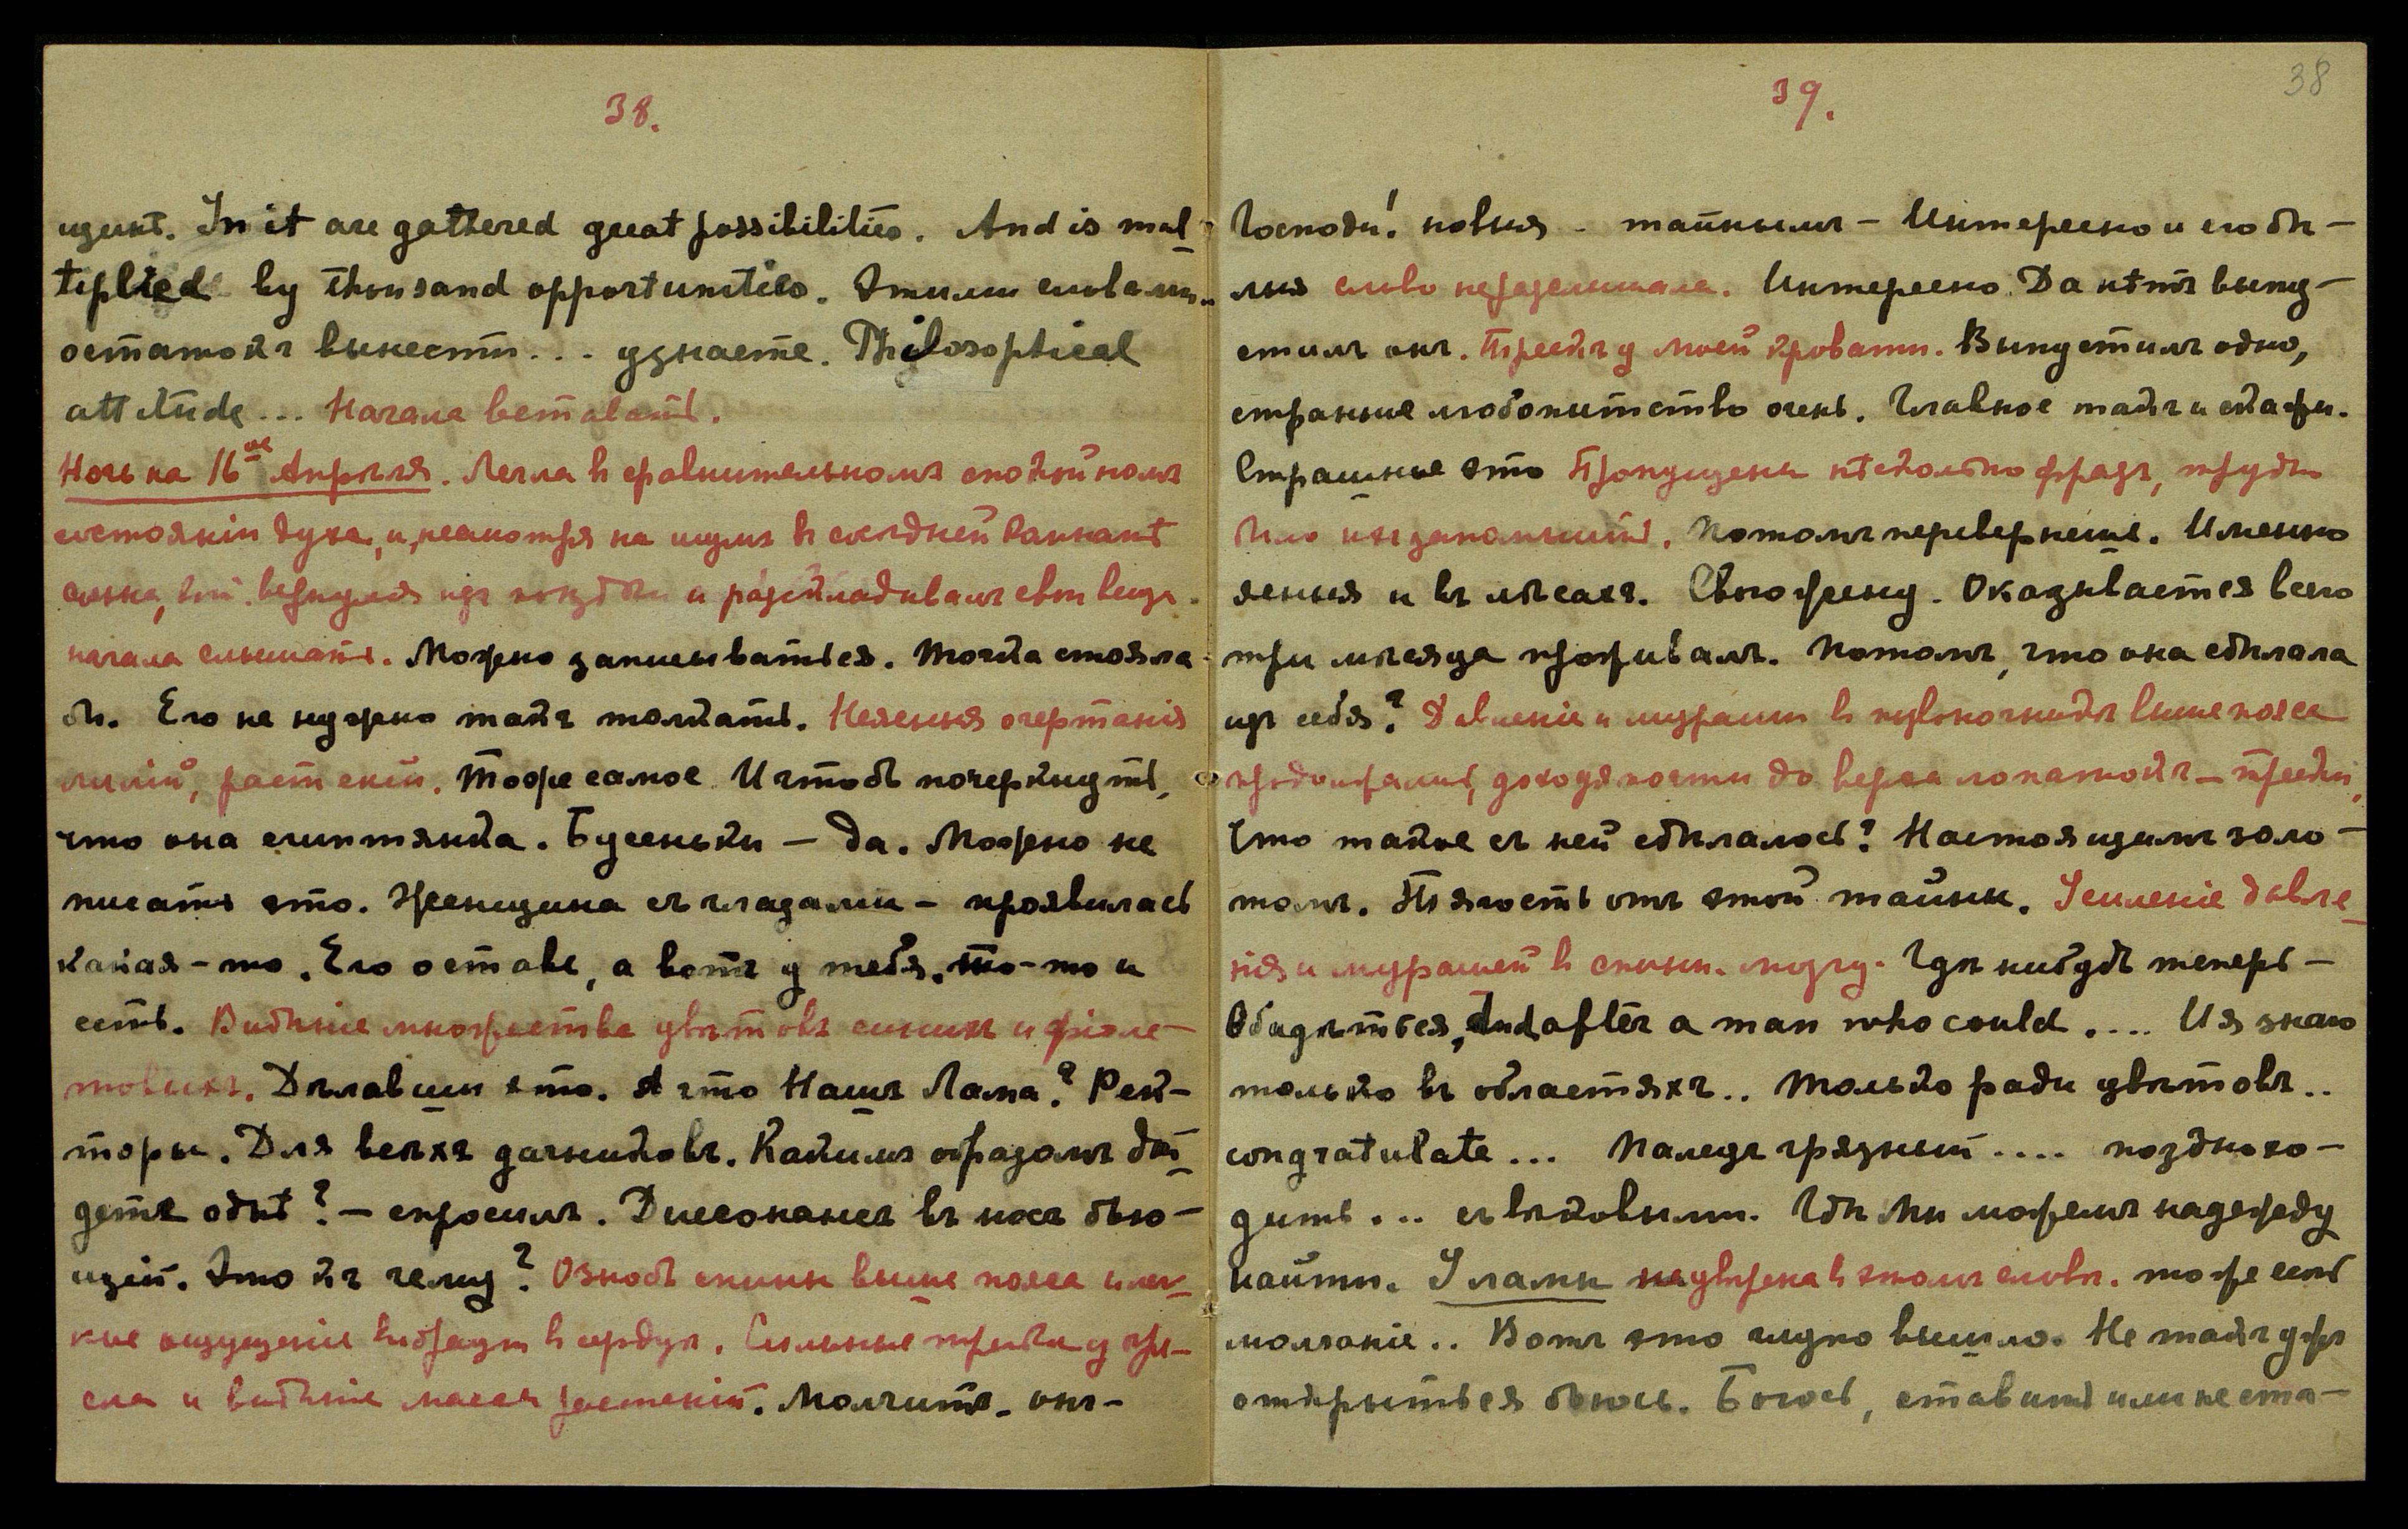 38.
щент. In it are gathered great possibilities. And is mul-
tiplied by thousand opportunities. Этими словами..
остатокъ вынести... узнаете. Philosophical
attitude... Начала вставать.
Ночь на 16ое Апрѣля. Легла в сравнительномъ спокойномъ
состояніи духа, и, несмотря на шумъ в сосѣдней ваннанѣ
сына, вернулся изъ и раскладывалъ свои вещи.
начала слышать. Можно записываться. Точка стояла
бы. Его не нужно такъ толкать. Неясныя очертанія
лилій, растеній. Тоже самое. И чтобъ почеркнуть,
что она египтянка. Бусеньки – да. Можно не
писать это. Женщина съ глазами – проявилась
какая-то. Его оставь, а вотъ у тебя. то-то и
есть. Видѣніе множества цвѣтовъ синихъ и фіоле-
товыхъ. Дѣлавши это. А что Нашъ Лама? Рек-
торы. Для всѣхъ дачниковъ. Какимъ образомъ бу-
детъ одѣт? – спросилъ. Диссонансъ въ носъ бью-
щій. Это къ чему? Ознобъ спины выше пояса и лег-
кие ощущенія вибрацій в сердцѣ. Сильные трески у кре-
сла и видѣніе массы растеній. Молчитъ – онъ –
39.
38
Господи! новыя – тайнымъ – Интересно и его бѣ-
лыя слово неразслышала. Интересно. Да нѣтъ выпу-
стилъ онъ. Трескъ у моей кровати. Выпустилъ одно,
странные любопытство очень. Главное такъ и скажи.
Страшные это Пропущены нѣсколько фразъ, трудно
было ихъ запомнить. Потомъ перевернешь. Именно
ясныя и въ лѣсахъ. Свою жену. Оказывается всего
три мѣсяца проживалъ. Потомъ, что она сдѣлала
изъ себя? Давленіе и мураши в позвоночникѣ выше пояса
продолжались, доходя почти до верха лопатокъ – трески,
Что такое съ ней сдѣлалось? Настоящимъ золо-
томъ. Тягость отъ этой тайны. Усиленіе давле-
нія и мурашей в спинн. мозгу. Гдѣ нибудь теперь –
Обидѣться, And after a man who could .... И я знаю
только въ областяхъ.. только ради цвѣтовъ..
congratulate... Палецъ грязный .... поздно хо-
дить... съ вѣковыми. Гдѣ мы можемъ надежду
найти. Уламы не увѣрена в этомъ словѣ. тоже есть
молчаніе.. Вотъ это чудно вышло. Не такъ уже
открыться боюсь. Боюсь, ставить или не ста-